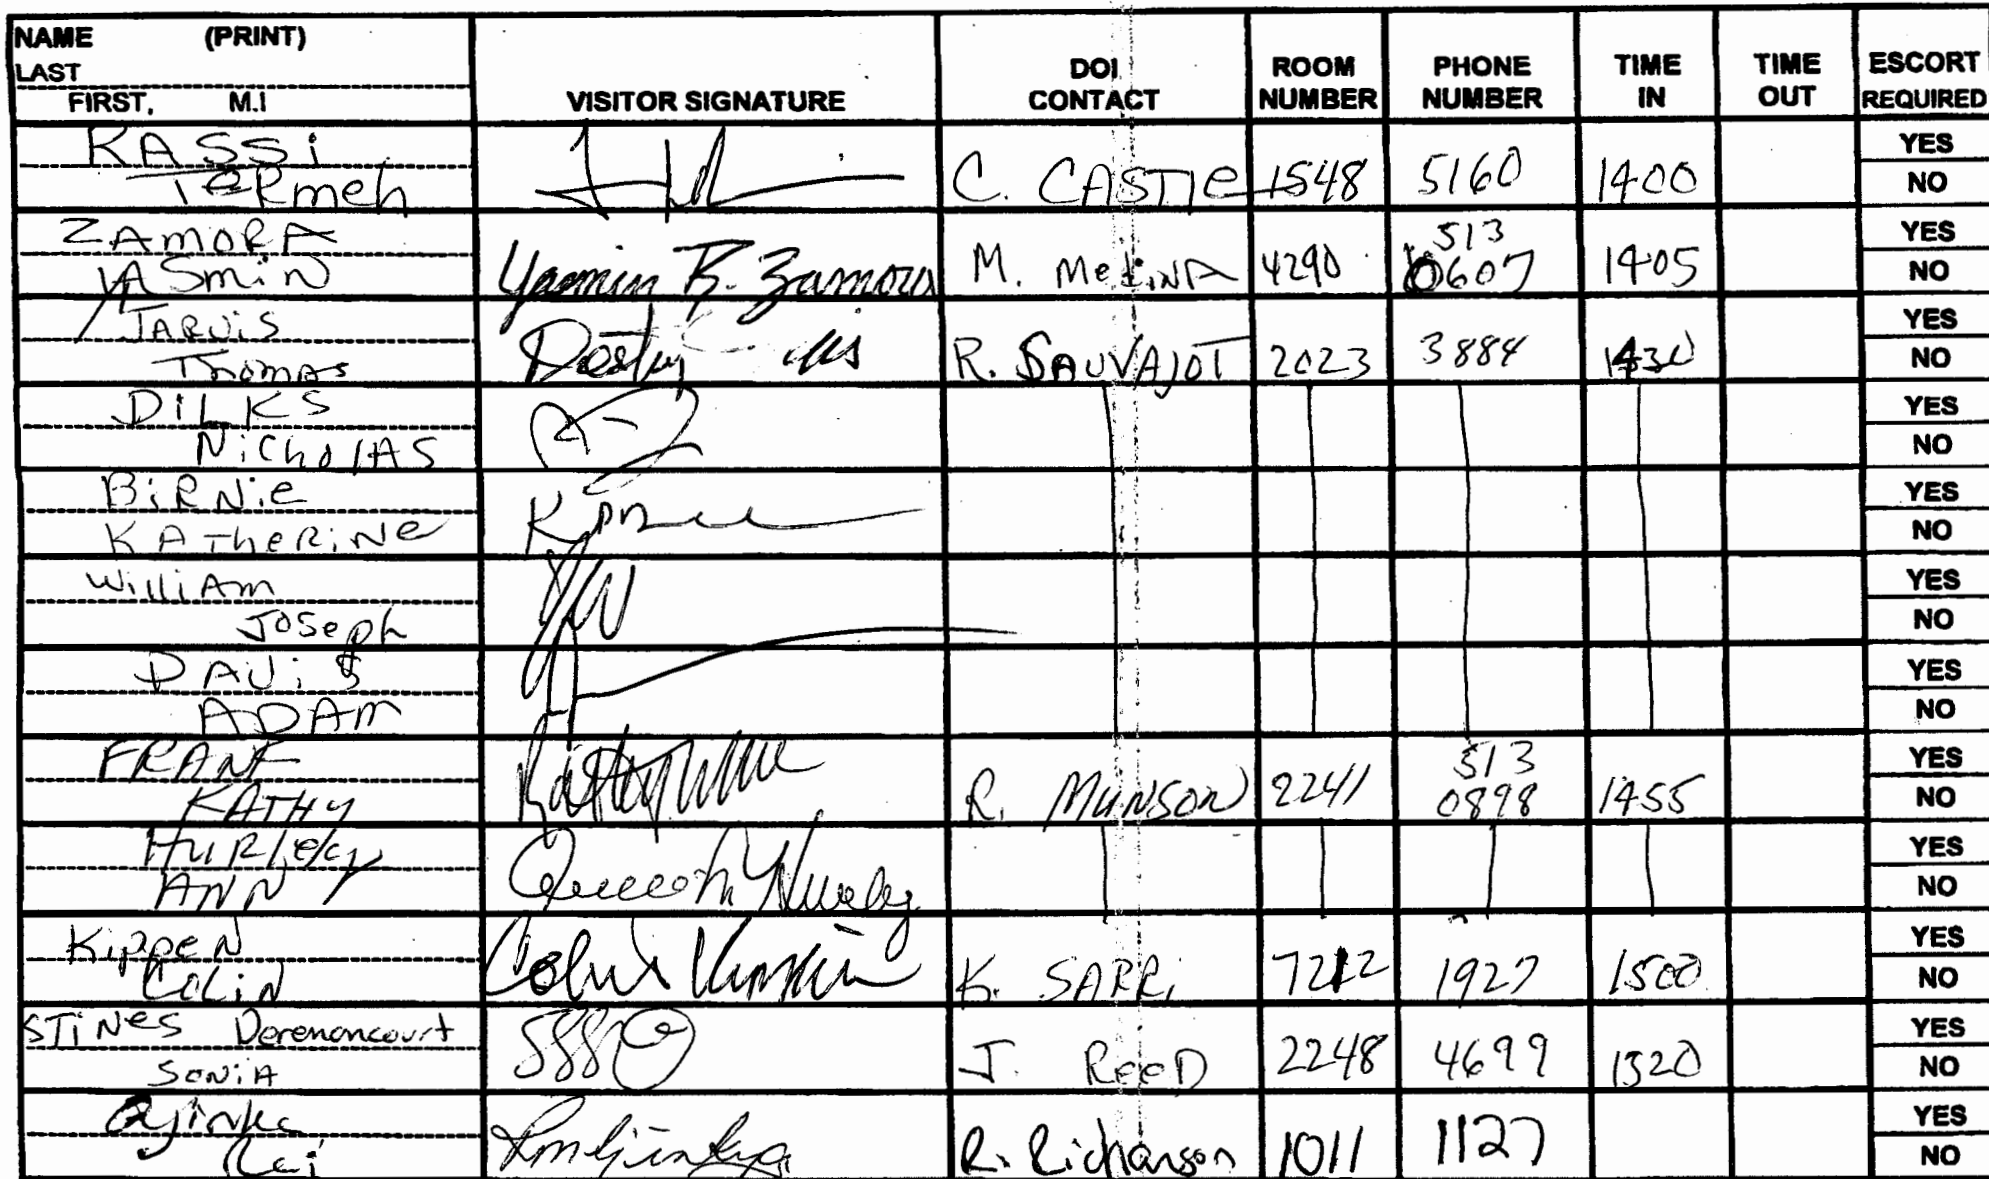 NAME (PRINT)
LAST
FIRST, M.I
VISITOR SIGNATURE
DOI CONTACT
ROOM NUMBER
PHONE NUMBER
TIME IN
TIME OUT
ESCORT REQUIRED
KASSi
TeRmeh
C. CASTle 1548 5160 1400
YES
NO
ZAmORA
YASmiN
Yasmin R. Zamora
M. MeLiNA 4290 513 0607 1405
YES
NO
JARViS
Thomas
R. SAUVAJOT 2023 3884 1430
YES
NO
DiLKS
NicholAS
YES
NO
BiRNie
KATheRiNe
YES
NO
WilliAm
JOSeph
YES
NO
DAViS
ADAm
YES
NO
FRANK
KATHY
R. MUNSON 2241 513 0898 1455
YES
NO
HURley
ANN
YES
NO
KippeN
COLiN
Colin Kippen
K. SARRi 7212 1927 1500
YES
NO
STiNeS Derenoncourt
SONiA
J. ReeD 2248 4699 1520
YES
NO
R. Richarson 1011 1127
YES
NO